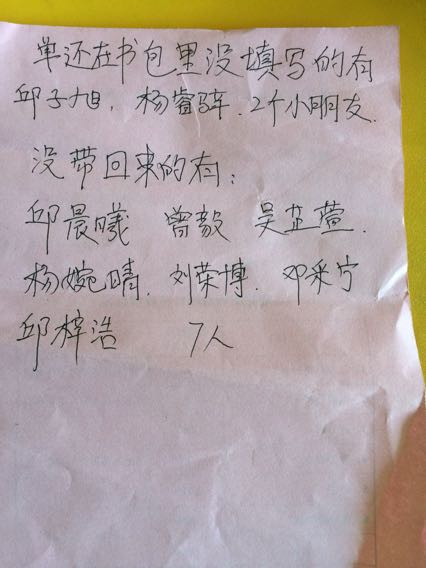 单还在书包里没填写的有
邱子旭, 杨睿骍. 2个小朋友.
没带回来的有:
邱晨曦 曾毅 吴芷萱.
杨婉晴. 刘荣博. 邓采宁
邱梓浩 7人